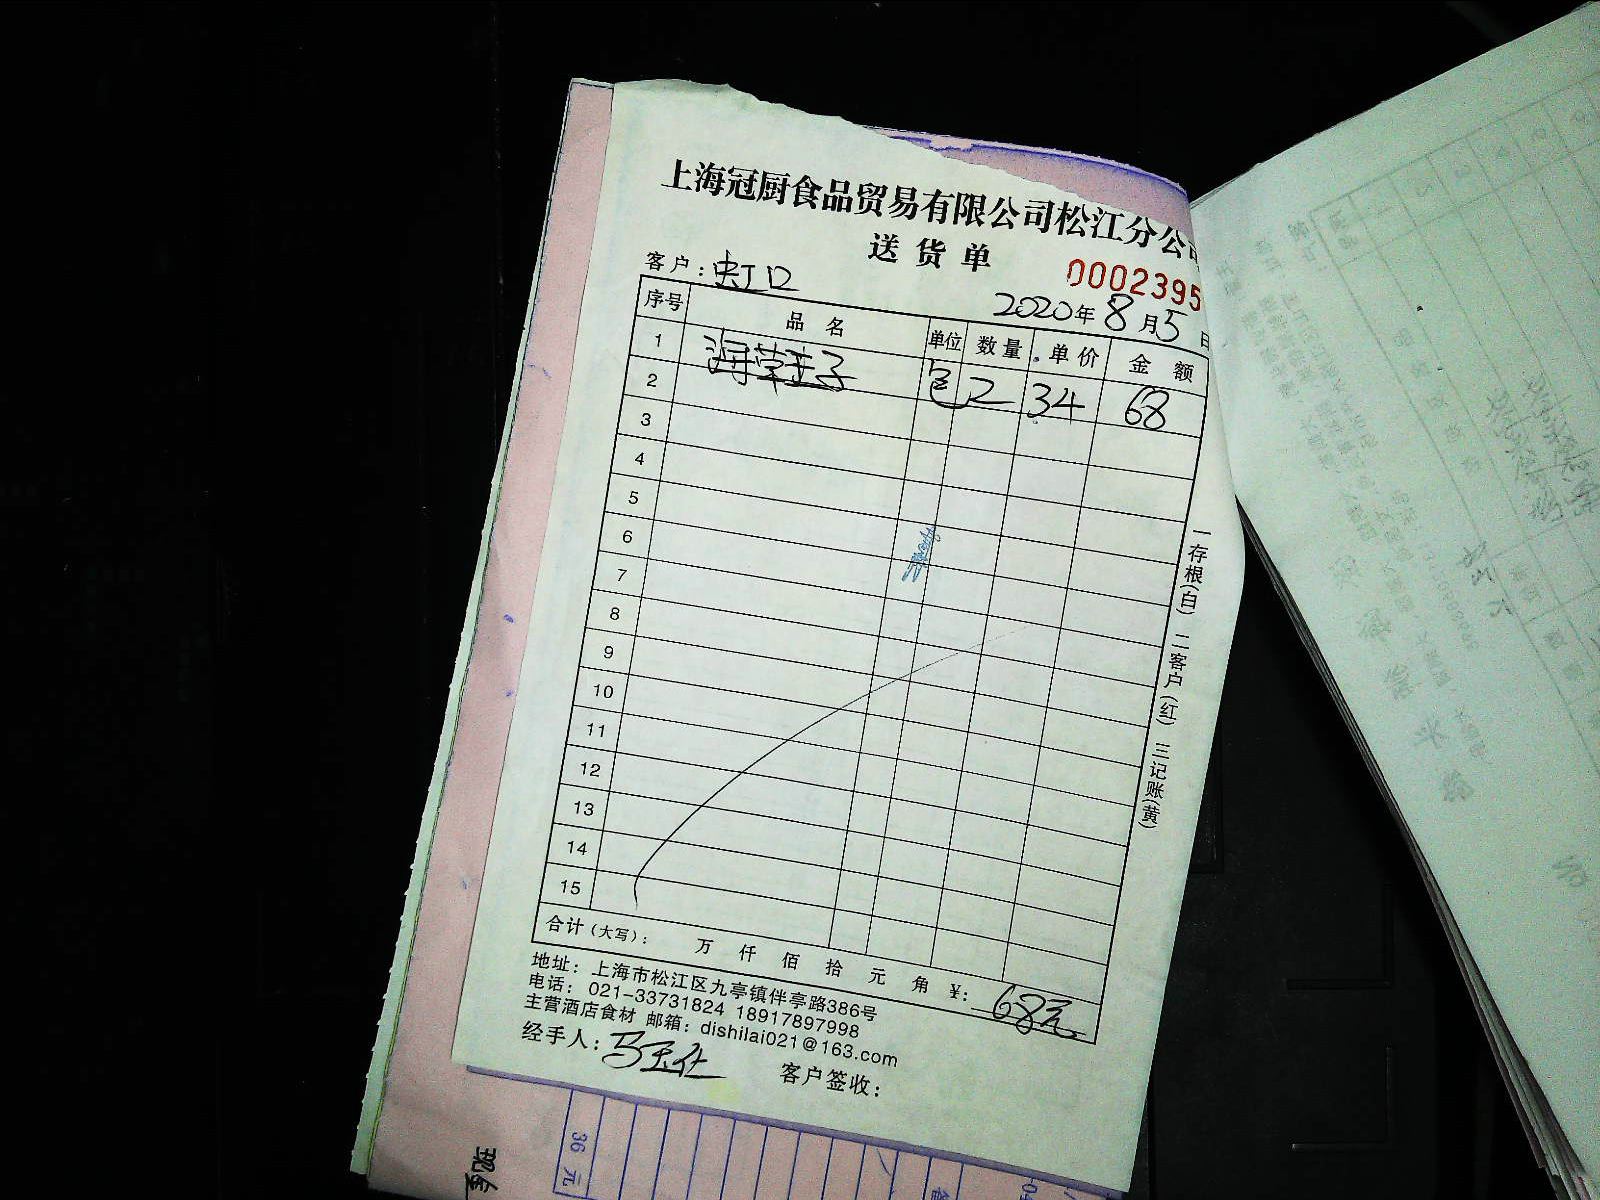 上海冠厨食品贸易有限公司松江分公司
送货单
0002395
客户：虹口
2020年8月5日
序号 品名 单位 数量 单价 金额
1 包 2 34 68
2
3
4
5
6
7
8
9
10
11
12
13
14
15
合计（大写）： 万 仟 佰 拾 元 角 ¥：68元
地址：上海市松江区九亭镇伴亭路386号
电话：021-33731824 18917897998
主营酒店食材 邮箱：dishilai021@163.com
经手人：
客户签收：
一存根(白) 二客户(红) 三记账(黄)
36元